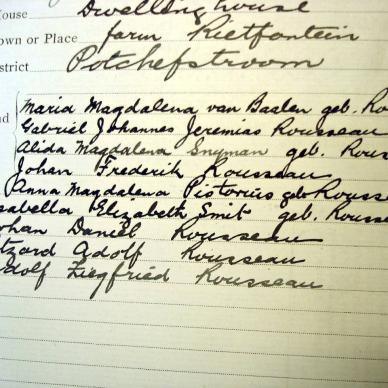 House Dwelling house
own or Place farm Rietfontein
strict Potchefstroom
nd
Maria Magdalena van Baalen geb. Ro
Gabriel Johannes Jeremias Rousseau
Alida Magdalena Snyman geb. Rous
Johan Frederik Rousseau
Anna Magdalena Pistorius geb Rousse
sabella Elizabeth Smit geb. Rousse
ohan Daniel Rousseau
tzard Adolf Rousseau
dolf Ziegfried Rousseau